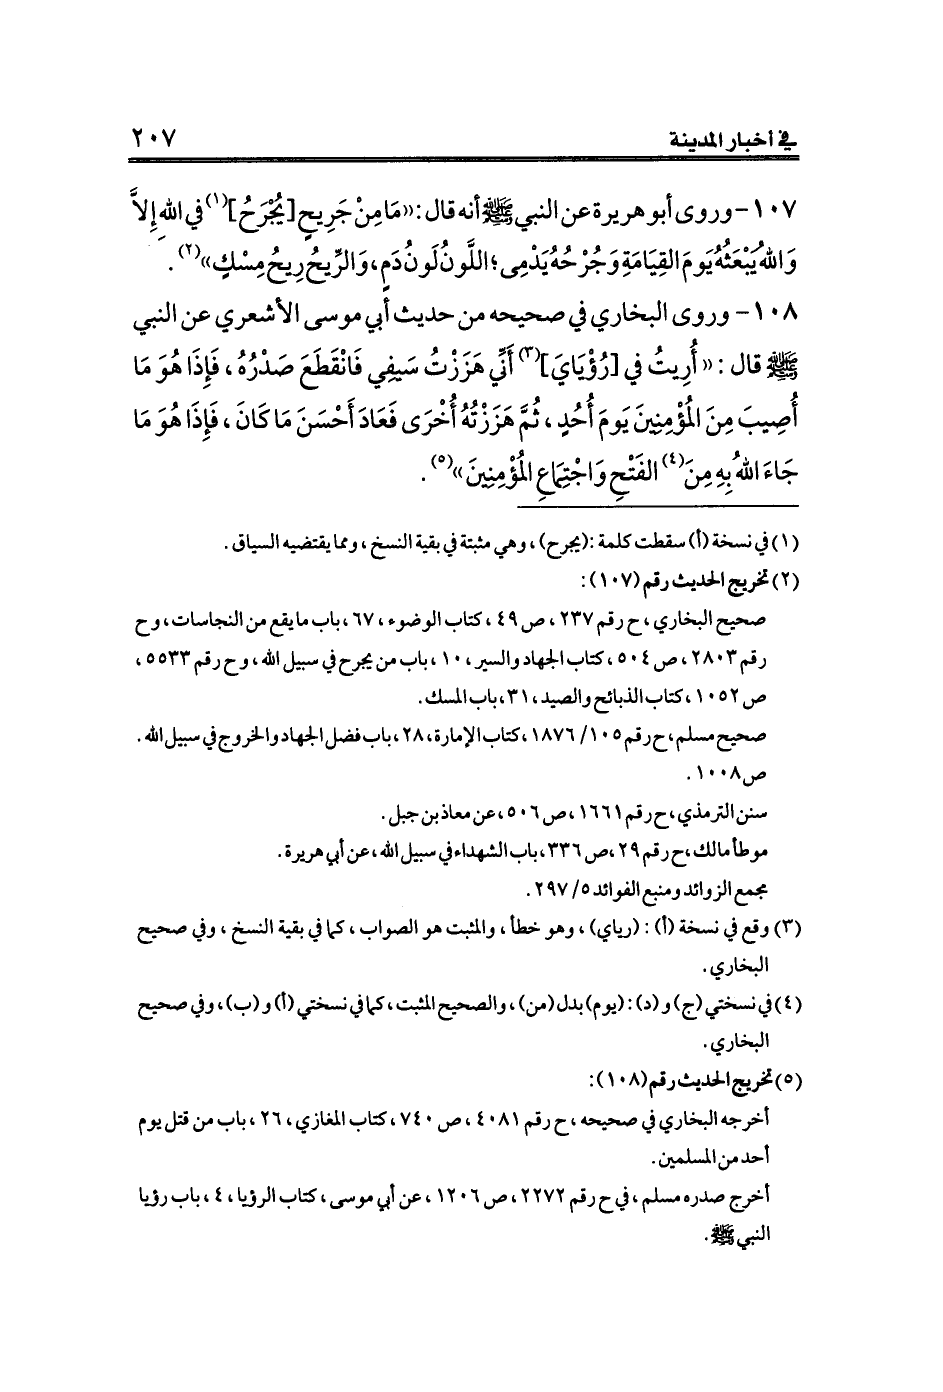 في أخبار المدينة ٢٠٧
١٠٧- وروى أبو هريرة عن النبي ﷺ أنه قال: «مَا مِنْ جَرِيحٍ [يُجْرَحُ](١) في اللهِ إِلاَّ
وَاللهُ يُبْعَثُهُ يَومَ القِيَامَةِ وَجُرْحُهُ يَدْمِى؛ اللَّونُ لَونُ دَمٍ، وَالرِّيحُ رِيحُ مِسْكٍ»(٢).
١٠٨- وروى البخاري في صحيحه من حديث أبي موسى الأشعري عن النبي
ﷺ قال: «أُرِيتُ في [رُؤْيَايَ](٣) أَنِّي هَزَزْتُ سَيفِي فَانْقَطَعَ صَدْرُهُ، فَإِذَا هُوَ مَا
أُصِيبَ مِنَ المُؤْمِنِينَ يَومَ أُحُدٍ، ثُمَّ هَزَزْتُهُ أُخْرَى فَعَادَ أَحْسَنَ مَا كَانَ، فَإِذَا هُوَ مَا
جَاءَ اللهُ بِهِ مِنَ(٤) الفَتْحِ وَاجْتِمَاعِ المُؤْمِنِينَ»(٥).
(١) في نسخة (أ) سقطت كلمة: (يجرح)، وهي مثبتة في بقية النسخ، ومما يقتضيه السياق.
(٢) تخريج الحديث رقم (١٠٧):
صحيح البخاري، ح رقم ٢٣٧، ص ٤٩، كتاب الوضوء، ٦٧، باب ما يقع من النجاسات، وح
رقم ٢٨٠٣، ص ٥٠٤، كتاب الجهاد والسير، ١٠، باب من يجرح في سبيل الله، وح رقم ٥٥٣٣،
ص ١٠٥٢، كتاب الذبائح والصيد، ٣١، باب المسك.
صحيح مسلم، ح رقم ١٠٥/ ١٨٧٦، كتاب الإمارة، ٢٨، باب فضل الجهاد والخروج في سبيل الله.
ص ١٠٠٨.
سنن الترمذي، ح رقم ١٦٦١، ص ٥٠٦، عن معاذ بن جبل.
موطأ مالك، ح رقم ٢٩، ص ٣٣٦، باب الشهداء في سبيل الله، عن أبي هريرة.
مجمع الزوائد ومنبع الفوائد ٥/ ٢٩٧.
(٣) وقع في نسخة (أ): (رياي)، وهو خطأ، والمثبت هو الصواب، كما في بقية النسخ، وفي صحيح
البخاري.
(٤) في نسختي (ج) و (د): (يوم) بدل (من)، والصحيح المثبت، كما في نسختي (أ) و (ب)، وفي صحيح
البخاري.
(٥) تخريج الحديث رقم (١٠٨):
أخرجه البخاري في صحيحه، ح رقم ٤٠٨١، ص ٧٤٠، كتاب المغازي، ٢٦، باب من قتل يوم
أحد من المسلمين.
أخرج صدره مسلم، في ح رقم ٢٢٧٢، ص ١٢٠٦، عن أبي موسى، كتاب الرؤيا، ٤، باب رؤيا
النبي ﷺ.